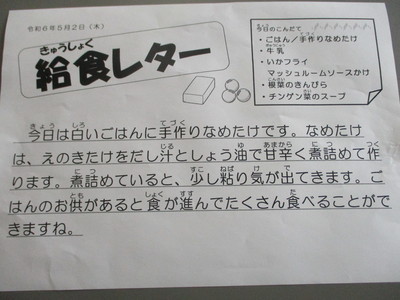 令和6年5月2日(木)
きゅうしょく
給食レター
今日のこんだて
・ごはん/手作りなめたけ
・牛乳
・いかフライ
マッシュルームソースかけ
・根菜のきんぴら
・チンゲン菜のスープ
今日は白いごはんに手作りなめたけです。なめたけ
は、えのきたけをだし汁としょう油で甘辛く煮詰めて作
ります。煮詰めていると、少し粘り気が出てきます。ご
はんのお供があると食が進んでたくさん食べることがで
きますね。